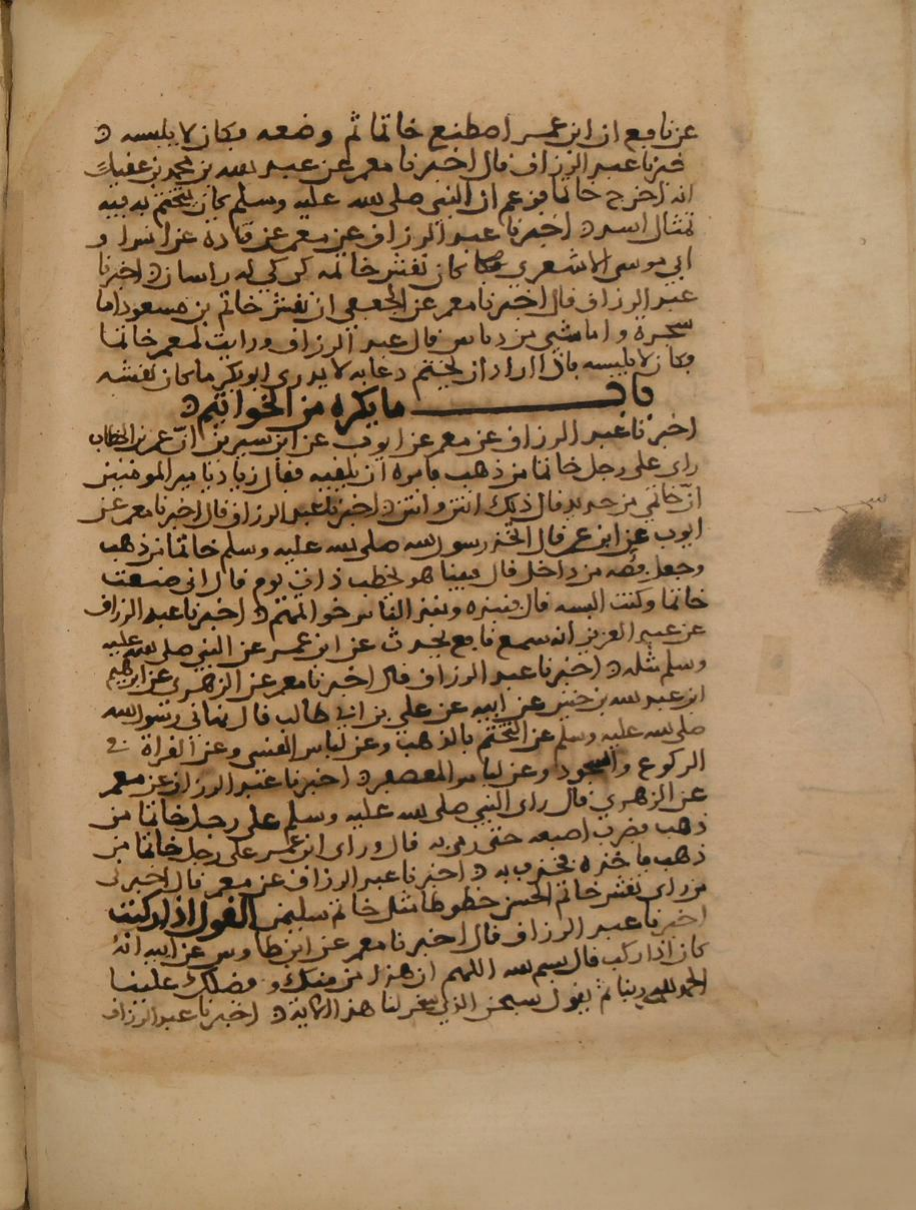 عن نافع ان ابن عمر اصطنع خاتما ثم وضعه فكان لا يلبسه
خبرنا عبد الرزاق قال اخبرنا معمر عن عبد الله بن محمد بن عقيل
انه اخرج خاتما فزعم ان النبي صلى الله عليه وسلم كان يتختم به فيه
تمثال اسد اخبرنا عبد الرزاق عن معمر عن قتادة عن انس او
ابي موسى الاشعري كان نقش خاتمه كركي له راسان اخبرنا
عبد الرزاق قال اخبرنا معمر عن الجعفي ان نقش خاتم بن مسعود اما
شجرة واما شي بين ذبابين قال عبد الرزاق ورايت لمعمر خاتما
وكان لا يلبسه فاذا اراد ان يختم دعا به لا يدري ابو بكر ما كان نقشه
باب ما يكره من الخواتيم
اخبرنا عبد الرزاق عن معمر عن ايوب عن ابن سيرين ان عمر بن الخطاب
راى على رجل خاتما من ذهب فامره ان يلقيه فقال زياد يا مير المومنين
ان خاتمي من حديد قال ذلك انتن وانتن اخبرنا عبد الرزاق قال اخبرنا معمر عن
ايوب عن ابن عمر قال اتخذ رسول الله صلى الله عليه وسلم خاتما من ذهب
وجعل فصه من داخل قال فبينا هو يخطب ذات يوم قال اني صنعت
خاتما وكنت البسه قال فنبذه ونبذ الناس خواتمهم اخبرنا عبد الرزاق
عن عبد العزيز انه سمع نافع يحدث عن ابن عمر عن النبي صلى الله عليه
وسلم مثله اخبرنا عبد الرزاق قال اخبرنا معمر عن الزهري عن ابرهيم
ابن عبد الله بن حنين عن ابيه عن علي بن ابي طالب قال نهاني رسول الله
صلى الله عليه وسلم عن التختم بالذهب وعن لباس القسي وعن القراة في
الركوع والسجود وعن لباس المعصفر اخبرنا عبد الرزاق عن معمر
عن الزهري قال راى النبي صلى الله عليه وسلم على رجل خاتما من
ذهب فضرب اصبعه حتى رمى به قال وراى ابن عمر على رجل خاتما من
ذهب فاخذه فخذف به اخبرنا عبد الرزاق عن معمر قال اخبرني
من راى نقش خاتم الحسن خطوطا مثل خاتم سليمن القول اذا ركبت
اخبرنا عبد الرزاق قال اخبرنا معمر عن ابن طاوس عن ابيه انه
كان اذا ركب قال بسم الله اللهم ان هذا من منك وفضلك علينا
الحمد لله ربنا ثم يقول سبحن الذي سخر لنا هذا الاية اخبرنا عبد الرزاق